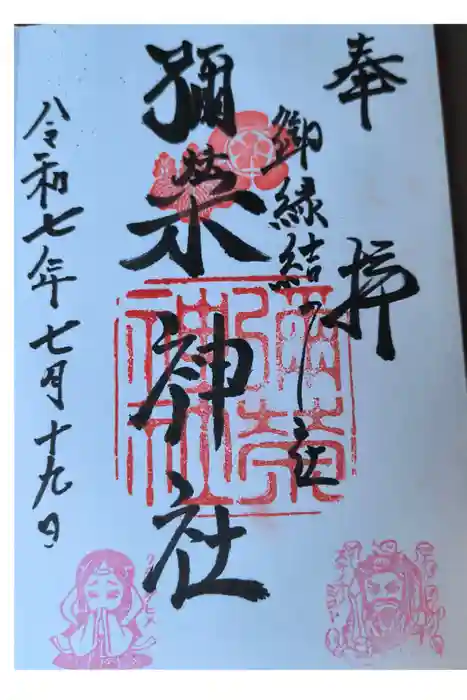 奉拝
御縁結
彌榮神社
彌榮
神社
令和七年七月十九日